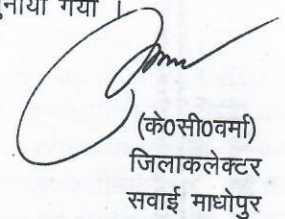 गया ।
(के0सी0वर्मा)
जिलाकलेक्टर
सवाई माधोपुर